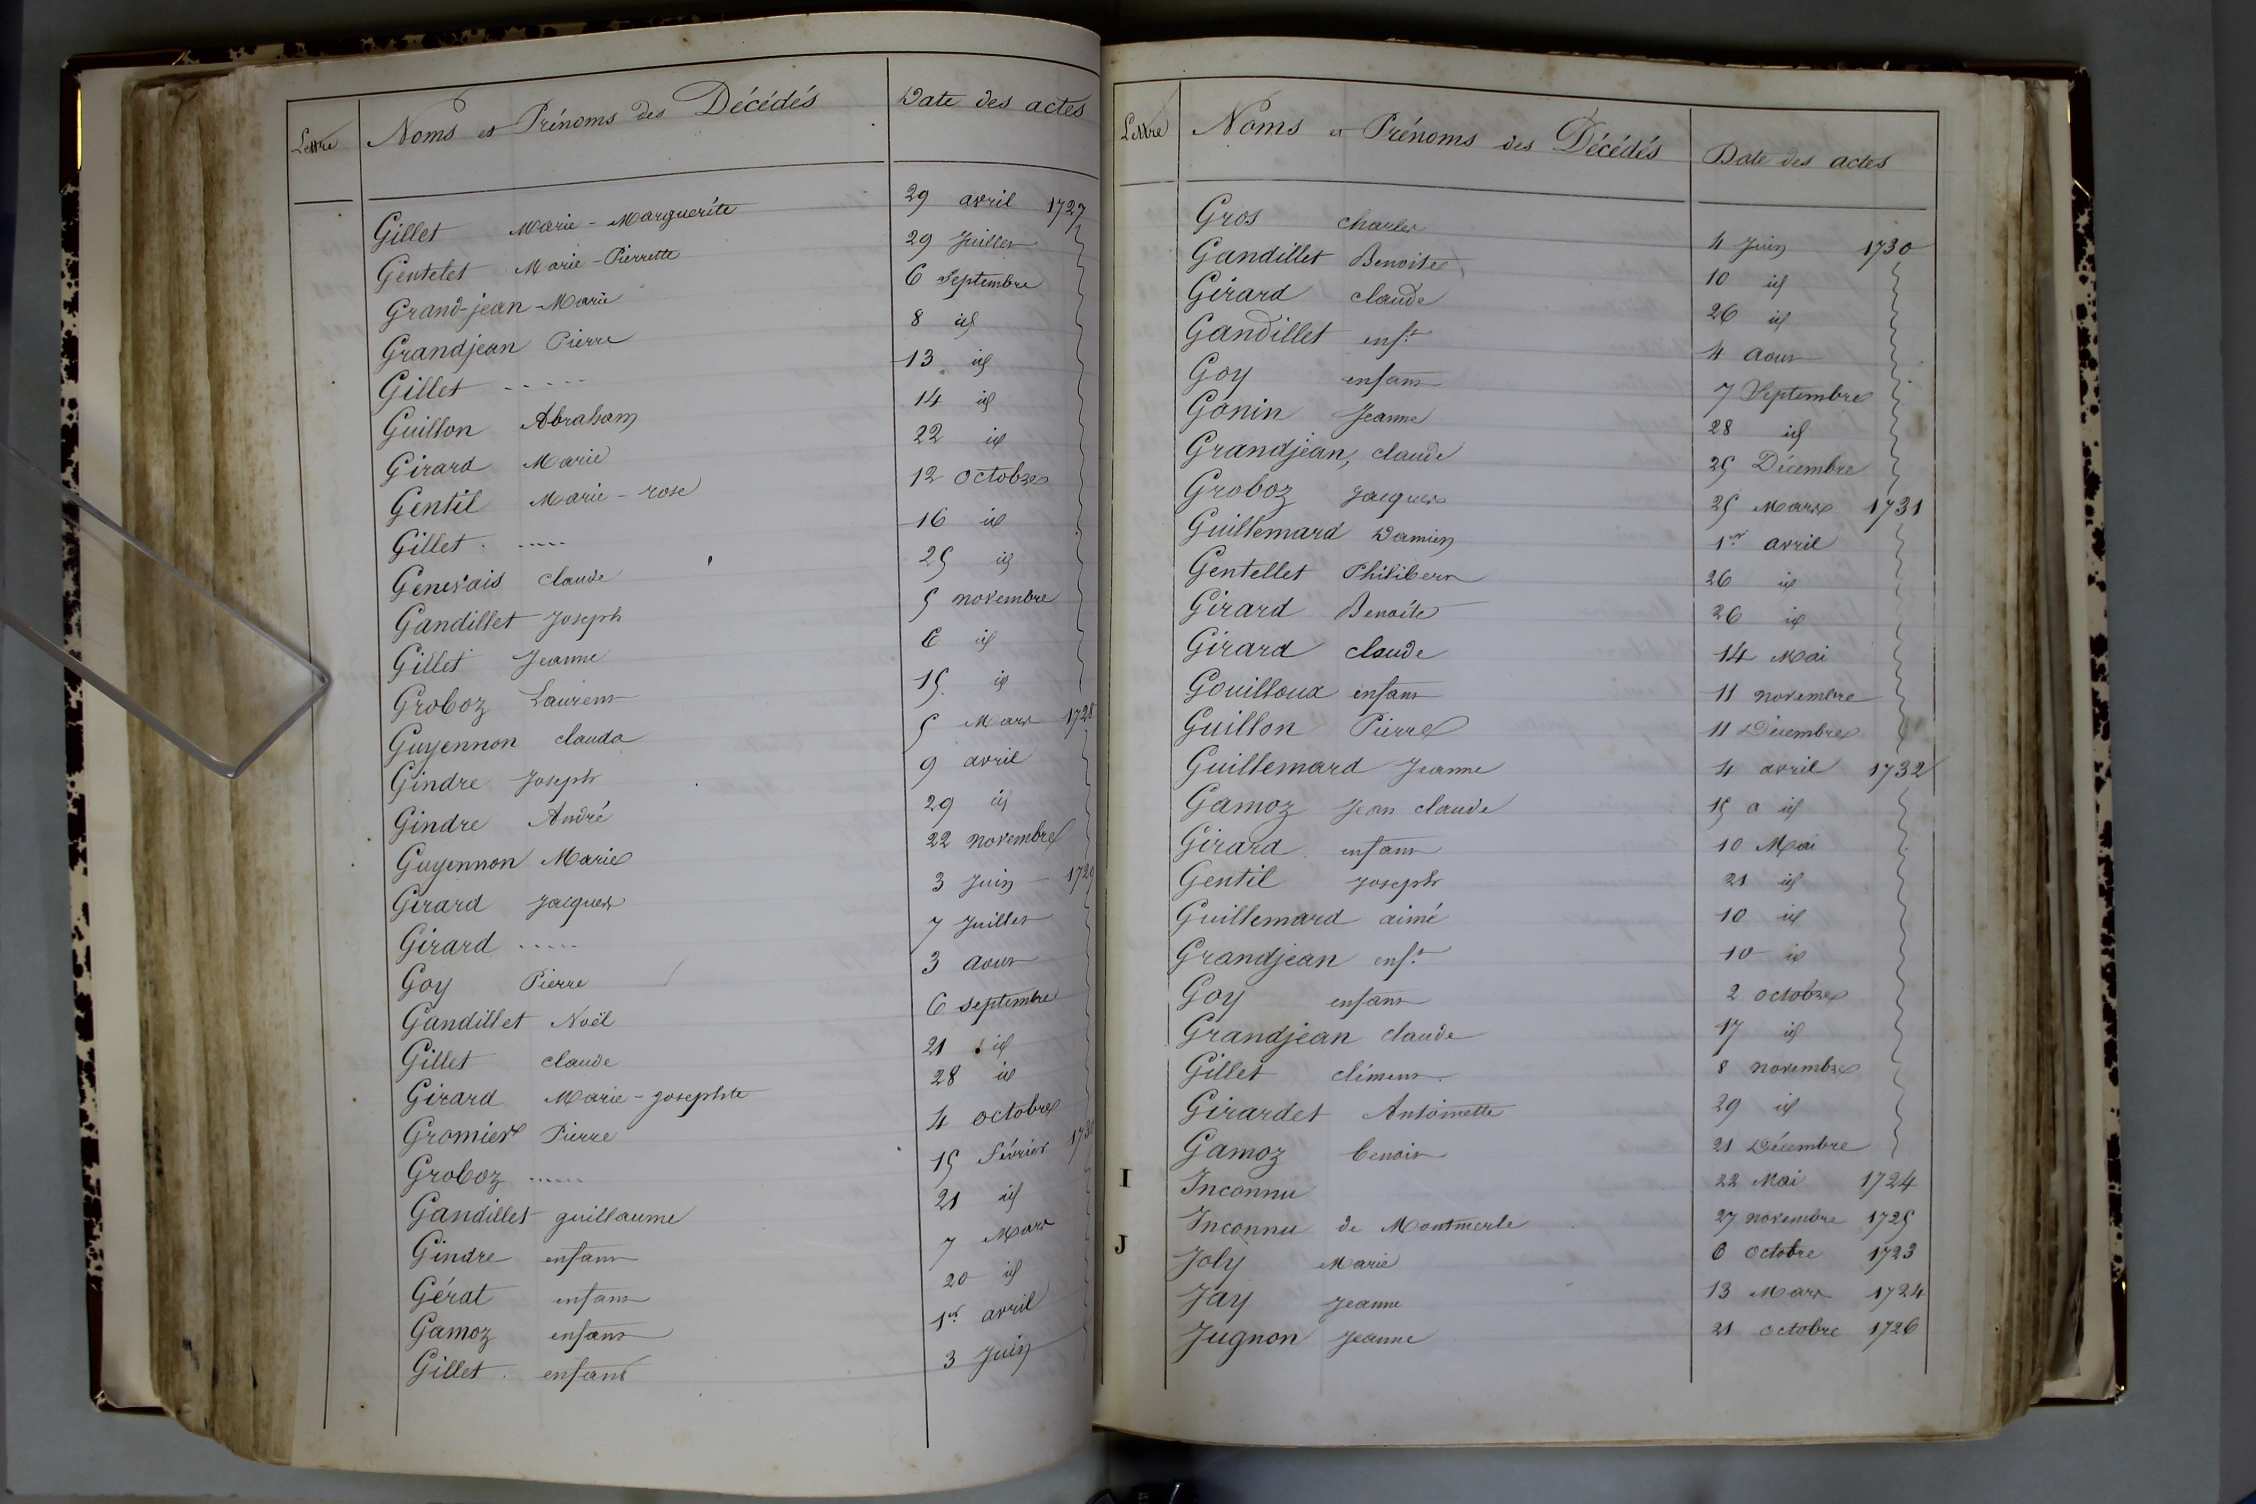 Lettre Noms et Prénoms des Décédés Date des actes
Gillet Marie-Marguerite 29 avril 1727
Gentelet Marie-Pierrette 29 Juillet
Grand-jean Marie 6 Septembre
Grandjean Pierre 8 id
Gillet ----- 13 id
Guillon Abraham 14 id
Girard Marie 22 id
Gentil Marie-rose 12 octobre
Gillet ----- 16 id
Genevais claude 25 id
Gandillet Joseph 5 novembre
Gillet Jeanne 6 id
Groboz Laurent 15 id
Guyennon clauda 5 Mars 1728
Gindre Joseph 9 avril
Gindre André 29 id
Guyennon Marie 22 novembre
Girard Jacques 3 Juin 1729
Girard ----- 7 Juillet
Goy Pierre 3 aout
Gandillet Noël 6 septembre
Gillet claude 21 id
Girard Marie-Josephte 28 id
Gromier Pierre 4 octobre
Groboz ----- 15 février 1730
Gandillet guillaume 21 id
Gindre enfant 7 Mars
Gérat enfant 20 id
Gamoz enfant 1er avril
Gillet enfant 3 Juin
Lettre Noms et Prénoms des Décédés Date des actes
Gros charles 4 Juin 1730
Gandillet Benoite 10 id
Girard claude 26 id
Gandillet enft 4 aout
Goy enfant 7 Septembre
Gonin Jeanne 28 id
Grandjean, claude 25 Décembre
Groboz Jacques 25 Mars 1731
Guillemard Damien 1er avril
Gentellet Philibert 26 id
Girard Benoite 26 id
Girard claude 14 Mai
Gouilloux enfant 11 novembre
Guillon Pierre 11 Décembre
Guillemard Jeanne 4 avril 1732
Gamoz Jean claude 15 a id
Girard enfant 10 Mai
Gentil Joseph 21 id
Guillemard aimé 10 id
Grandjean enft 10 id
Goy enfant 2 octobre
Grandjean claude 17 id
Gillet clément 8 novembre
Girardet Antoinette 29 id
Gamoz benoit 21 Décembre
I Inconnu 22 Mai 1724
Inconnu de Montmerle 27 novembre 1725
J Joly Marie 6 octobre 1723
Jay Jeanne 13 Mars 1724
Jugnon Jeanne 21 octobre 1726